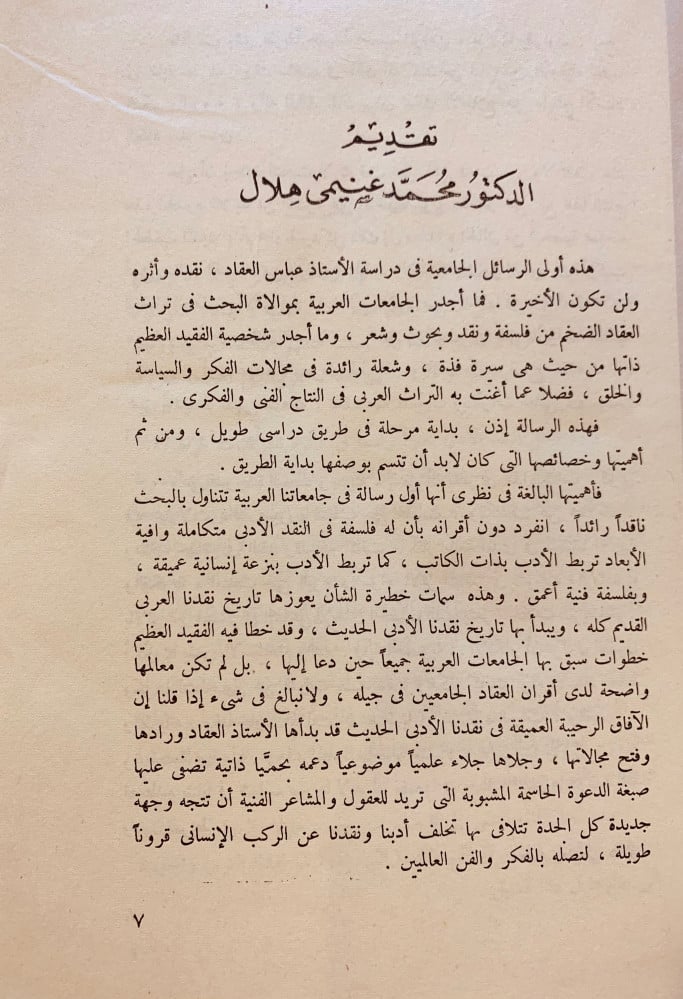 تقديم
الدكتور محمد غنيمى هلال
هذه أولى الرسائل الجامعية فى دراسة الأستاذ عباس العقاد ، نقده وأثره
ولن تكون الأخيرة . فما أجدر الجامعات العربية بموالاة البحث فى تراث
العقاد الضخم من فلسفة ونقد وبحوث وشعر ، وما أجدر شخصية الفقيد العظيم
ذاتها من حيث هى سيرة فذة ، وشعلة رائدة فى مجالات الفكر والسياسة
والخلق ، فضلا عما أغنت به التراث العربى فى النتاج الفنى والفكرى .
فهذه الرسالة إذن ، بداية مرحلة فى طريق دراسى طويل ، ومن ثم
أهميتها وخصائصها التى كان لابد أن تتسم بوصفها بداية الطريق .
فأهميتها البالغة فى نظرى أنها أول رسالة فى جامعاتنا العربية تتناول بالبحث
ناقداً رائداً ، انفرد دون أقرانه بأن له فلسفة فى النقد الأدبى متكاملة وافية
الأبعاد تربط الأدب بذات الكاتب ، كما تربط الأدب بنزعة إنسانية عميقة ،
وبفلسفة فنية أعمق . وهذه سمات خطيرة الشأن يعوزها تاريخ نقدنا العربى
القديم كله ، ويبدأ بها تاريخ نقدنا الأدبى الحديث ، وقد خطا فيه الفقيد العظيم
خطوات سبق بها الجامعات العربية جميعاً حين دعا إليها ، بل لم تكن معالمها
واضحة لدى أقران العقاد الجامعيين فى جيله ، ولانبالغ فى شىء إذا قلنا إن
الآفاق الرحيبة العميقة فى نقدنا الأدبى الحديث قد بدأها الأستاذ العقاد ورادها
وفتح مجالاتها ، وجلاها جلاء علمياً موضوعياً دعمه بحميَّا ذاتية تضفى عليها
صبغة الدعوة الحاسمة المشبوبة التى تريد للعقول والمشاعر الفنية أن تتجه وجهة
جديدة كل الجدة تتلافى بها تخلف أدبنا ونقدنا عن الركب الإنسانى قروناً
طويلة ، لتصله بالفكر والفن العالميين .
٧